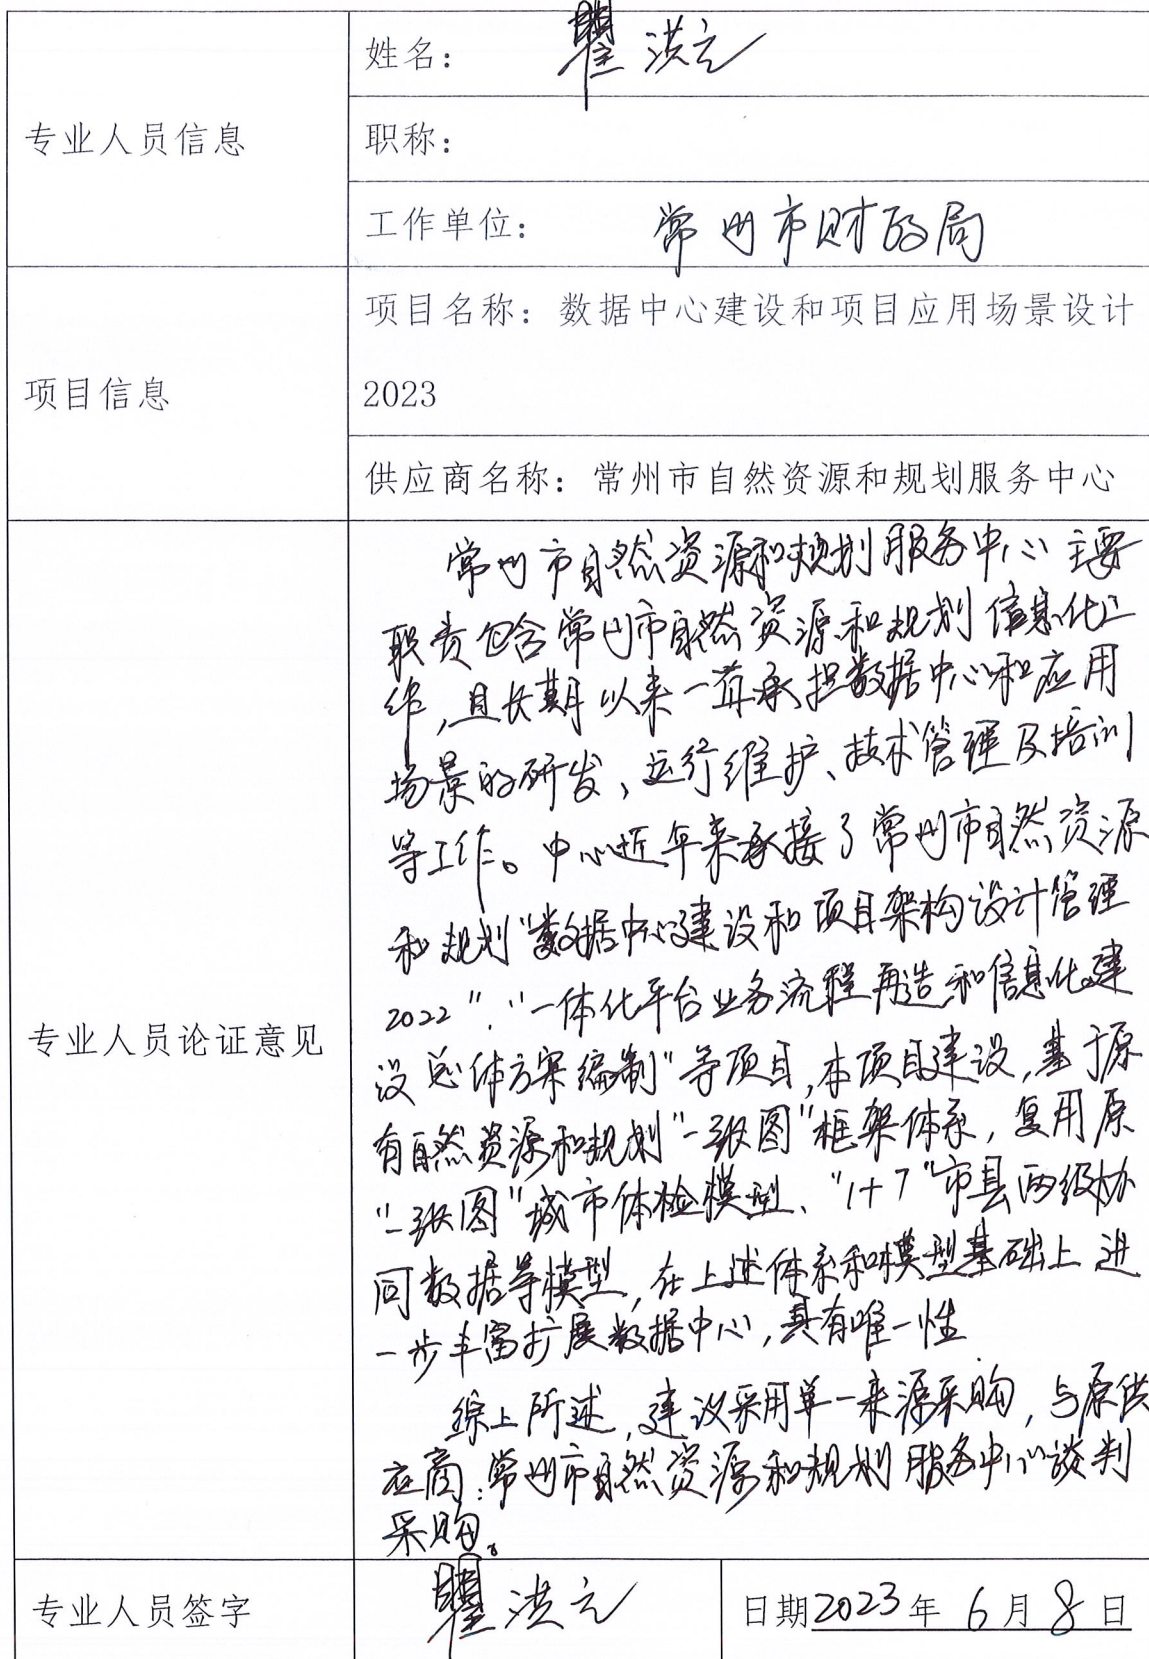 姓名： 瞿洪元
专业人员信息
职称：
工作单位： 常州市财政局
项目名称：数据中心建设和项目应用场景设计
项目信息
2023
供应商名称：常州市自然资源和规划服务中心
常州市自然资源和规划服务中心主要
职责包含常州市自然资源和规划信息化工
作，且长期以来一直承担数据中心和应用
场景的研发，运行维护、技术管理及培训
等工作。中心近年来承接了常州市自然资源
和规划“数据中心建设和项目架构设计管理
2022”、“一体化平台业务流程再造和信息化建
设总体方案编制”等项目，本项目建设，基于原
有自然资源和规划“一张图”框架体系，复用原
“一张图”城市体检模型、“1+7”市县两级协
同数据等模型，在上述体系和模型基础上进
一步丰富扩展数据中心，具有唯一性
综上所述，建议采用单一来源采购，与原供
应商：常州市自然资源和规划服务中心谈判
采购。
专业人员论证意见
专业人员签字 瞿洪元 日期2023年6月8日